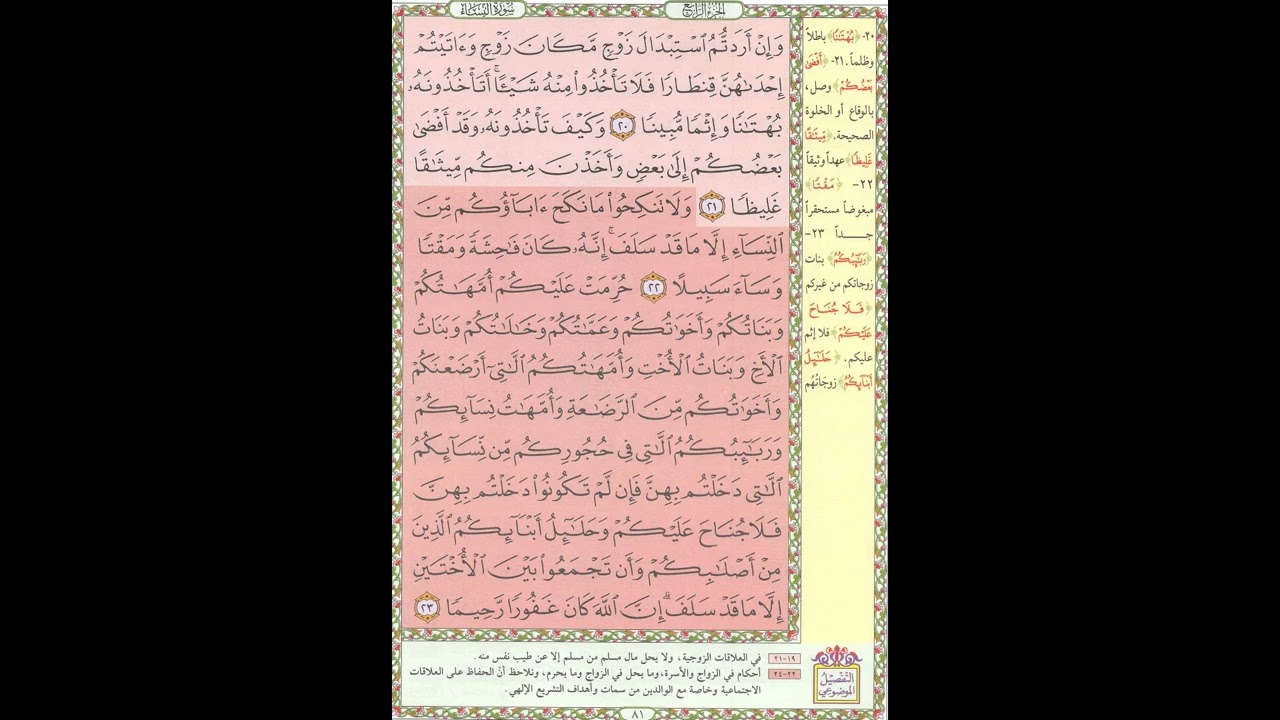 سُورَةُ النِّسَاءِ
الجُزْءُ الرَّابِعُ
وَإِنْ أَرَدتُّمُ ٱسْتِبْدَالَ زَوْجٍ مَّكَانَ زَوْجٍ وَءَاتَيْتُمْ
إِحْدَىٰهُنَّ قِنطَارًا فَلَا تَأْخُذُوا۟ مِنْهُ شَيْـًٔا ۚ أَتَأْخُذُونَهُۥ
بُهْتَـٰنًا وَإِثْمًا مُّبِينًا ٢٠ وَكَيْفَ تَأْخُذُونَهُۥ وَقَدْ أَفْضَىٰ
بَعْضُكُمْ إِلَىٰ بَعْضٍ وَأَخَذْنَ مِنكُم مِّيثَـٰقًا
غَلِيظًا ٢١ وَلَا تَنكِحُوا۟ مَا نَكَحَ ءَابَآؤُكُم مِّنَ
ٱلنِّسَآءِ إِلَّا مَا قَدْ سَلَفَ ۚ إِنَّهُۥ كَانَ فَـٰحِشَةً وَمَقْتًا
وَسَآءَ سَبِيلًا ٢٢ حُرِّمَتْ عَلَيْكُمْ أُمَّهَـٰتُكُمْ
وَبَنَاتُكُمْ وَأَخَوَٰتُكُمْ وَعَمَّـٰتُكُمْ وَخَـٰلَـٰتُكُمْ وَبَنَاتُ
ٱلْأَخِ وَبَنَاتُ ٱلْأُخْتِ وَأُمَّهَـٰتُكُمُ ٱلَّـٰتِىٓ أَرْضَعْنَكُمْ
وَأَخَوَٰتُكُم مِّنَ ٱلرَّضَـٰعَةِ وَأُمَّهَـٰتُ نِسَآئِكُمْ
وَرَبَـٰٓئِبُكُمُ ٱلَّـٰتِى فِى حُجُورِكُم مِّن نِّسَآئِكُمُ
ٱلَّـٰتِى دَخَلْتُم بِهِنَّ فَإِن لَّمْ تَكُونُوا۟ دَخَلْتُم بِهِنَّ
فَلَا جُنَاحَ عَلَيْكُمْ وَحَلَـٰٓئِلُ أَبْنَآئِكُمُ ٱلَّذِينَ
مِنْ أَصْلَـٰبِكُمْ وَأَن تَجْمَعُوا۟ بَيْنَ ٱلْأُخْتَيْنِ
إِلَّا مَا قَدْ سَلَفَ ۗ إِنَّ ٱللَّهَ كَانَ غَفُورًا رَّحِيمًا ٢٣
٢٠- ﴿بُهْتَـٰنًا﴾ باطلاً
وظلماً. ٢١- ﴿أَفْضَىٰ
بَعْضُكُمْ﴾ وصل،
بالوقاع أو الخلوة
الصحيحة. ﴿مِّيثَـٰقًا
غَلِيظًا﴾ عهداً وثيقاً
٢٢- ﴿مَقْتًا﴾
مبغوضاً مستحقراً
جـداً ٢٣-
﴿رَبَـٰٓئِبُكُمُ﴾ بنات
زوجاتكم من غيركم
﴿فَلَا جُنَاحَ
عَلَيْكُمْ﴾ فلا إثم
عليكم. ﴿حَلَـٰٓئِلُ
أَبْنَآئِكُمُ﴾ زوجاتُهم
التَّفصِيلُ
الموضوعي
١٩-٢١ في العلاقات الزوجية، ولا يحل مال مسلم من مسلم إلا عن طيب نفس منه.
٢٢-٢٤ أحكام في الزواج والأسرة، وما يحل في الزواج وما يحرم، ونلاحظ أنّ الحفاظ على العلاقات
الاجتماعية وخاصة مع الوالدين من سمات وأهداف التشريع الإلهي.
٨١